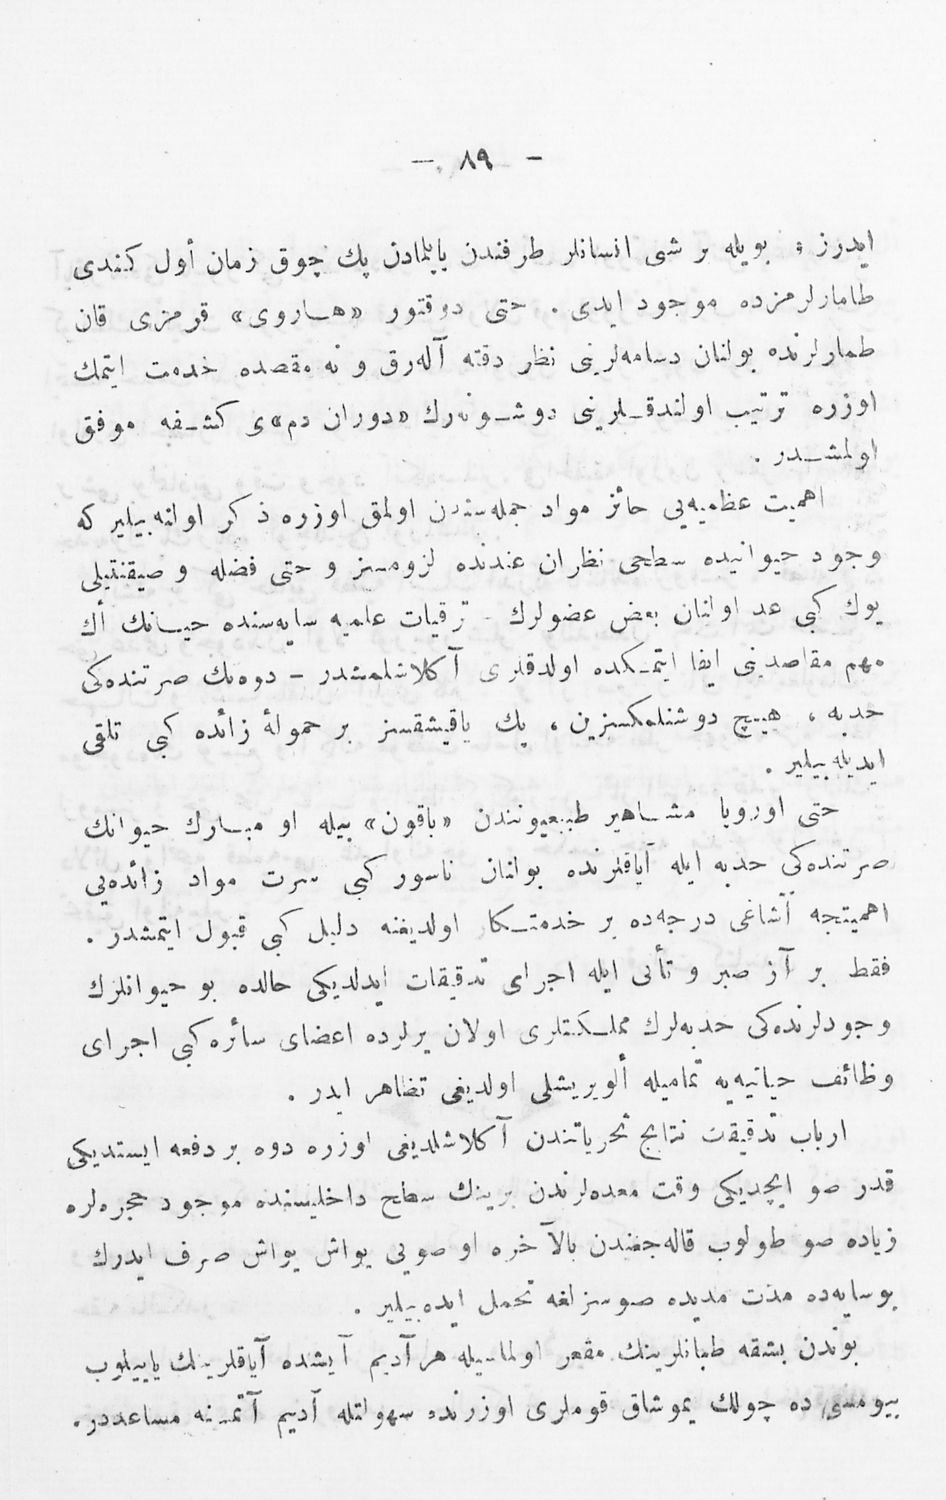 — ٨٩ —
ايدرز ، بويله بر شى انسانلر طرفندن ياپلمادن پك چوق زمان أول كندى
طامارلرمزده موجود ايدى . حتى دوقتور «هاروى» قرمزى قان
طمارلرنده بولنان دسامه‌لرينى نظر دقته آله‌رق و نه مقصده خدمت ايتمك
اوزره ترتيب اولندقلرينى دوشونه‌رك «دوران دم»ى كشفه موفق
اولمشدر .
اهميت عظميه‌يى حائز مواد جمله‌سندن اولمق اوزره ذكر اولنه‌بيلير كه
وجود حيوانيده سطحى نظران عندنده لزومسز و حتى فضله و صيقنتيلى
يوك كبى عد اولنان بعض عضولرك - ترقيات علميه سايه‌سنده حياتك أك
مهم مقاصدينى ايفا ايتمكده اولدقلرى آكلاشلمشدر - دوه‌نك صرتنده‌كى
حدبه ، هيچ دوشنلمكسزين ، پك ياقيشقسز بر حمولۀ زائده كبى تلقى
ايديله‌بيلير .
حتى اوروپا مشاهير طبيعيوندن «باقون» بيله او مبارك حيوانك
صرتنده‌كى حدبه ايله آياقلرنده بولنان ناسور كبى سرت مواد زائده‌يى
اهميتجه آشاغى درجه‌ده بر خدمتكار اولديغنه دليل كبى قبول ايتمشدر .
فقط بر آز صبر و تأنى ايله اجراى تدقيقات ايدلديكى حالده بو حيوانلرك
وجودلرنده‌كى حدبه‌لرك مملكتلرى اولان يرلرده اعضاى سائره كبى اجراى
وظائف حياتيه‌يه تماميله ألويريشلى اولديغى تظاهر ايدر .
ارباب تدقيقك نتايج تحرياتندن آكلاشلديغى اوزره دوه بر دفعه ايستديكى
قدر صو ايچديكى وقت معده‌لرندن برينك سطح داخليسنده موجود حجره‌لره
زياده صو طولوب قاله‌جغندن بالآخره او صويى يواش يواش صرف ايدرك
بوسايه‌ده مدت مديده صوسزلغه تحمل ايده‌بيلير .
بوندن بشقه طبانلرينك مقعر اولماسيله هر آديم آيشده آياقلرينك ياييلوب
بيومسى ده چولك يموشاق قوملرى اوزرنده سهولتله آديم آتمسنه مساعددر .